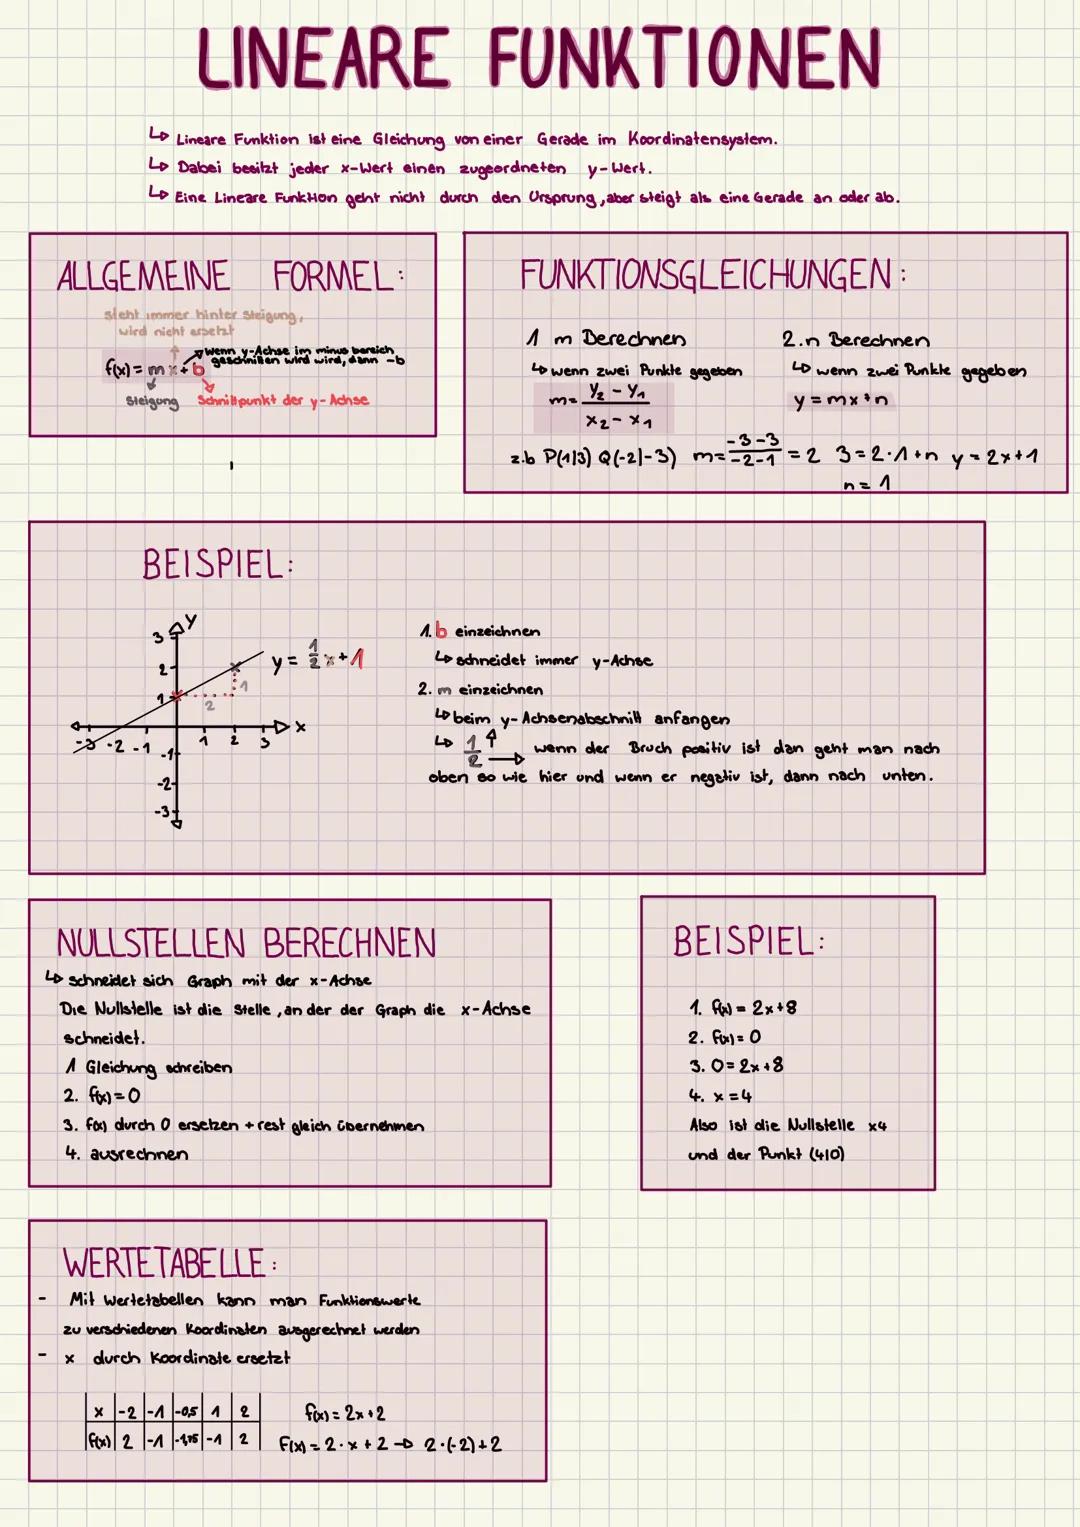 LINEARE FUNKTIONEN
↳ Lineare Funktion ist eine Gleichung von einer Gerade im Koordinatensystem.
↳ Dabei besitzt jeder x-Wert einen zugeordneten y-Wert.
↳ Eine Lineare Funktion geht nicht durch den Ursprung, aber steigt als eine Gerade an oder ab.
ALLGEMEINE FORMEL:
steht immer hinter Steigung,
wird nicht ersetzt
wenn y-Achse im minus bereich
geschnitten wird wird, dann -b
f(x) = mx+b
Steigung Schnittpunkt der y-Achse
FUNKTIONSGLEICHUNGEN:
1 m Berechnen
↳ wenn zwei Punkte gegeben
m= y₂ - y₁ / x₂ - x₁
2. n Berechnen
↳ wenn zwei Punkte gegeben
y = mx+n
z.b P(1|3) Q(-2|-3) m= -3-3 / -2-1 = 2 3=2·1+n y=2x+1
n= 1
BEISPIEL:
y
3
2
1
-3 -2 -1 1 2 3 x
-1
-2
-3
2
1
y = 1/2 x+1
1. b einzeichnen
↳ schneidet immer y-Achse
2. m einzeichnen
↳ beim y-Achsenabschnitt anfangen
↳ 1/2 ↑ → wenn der Bruch positiv ist dan geht man nach
oben so wie hier und wenn er negativ ist, dann nach unten.
NULLSTELLEN BERECHNEN
↳ schneidet sich Graph mit der x-Achse
Die Nullstelle ist die Stelle, an der der Graph die x-Achse
schneidet.
1 Gleichung schreiben
2. f(x)=0
3. f(x) durch 0 ersetzen + rest gleich übernehmen
4. ausrechnen
BEISPIEL:
1. f(x) = 2x+8
2. f(x) = 0
3. 0=2x+8
4. x=4
Also ist die Nullstelle x4
und der Punkt (4|0)
WERTETABELLE:
- Mit Wertetabellen kann man Funktionswerte
zu verschiedenen Koordinaten ausgerechnet werden
- x durch Koordinate ersetzt
x -2 -1 -0,5 1 2
f(x) 2 -1 -1,75 -1 2
f(x) = 2x+2
F(x) = 2·x+2 → 2·(-2)+2